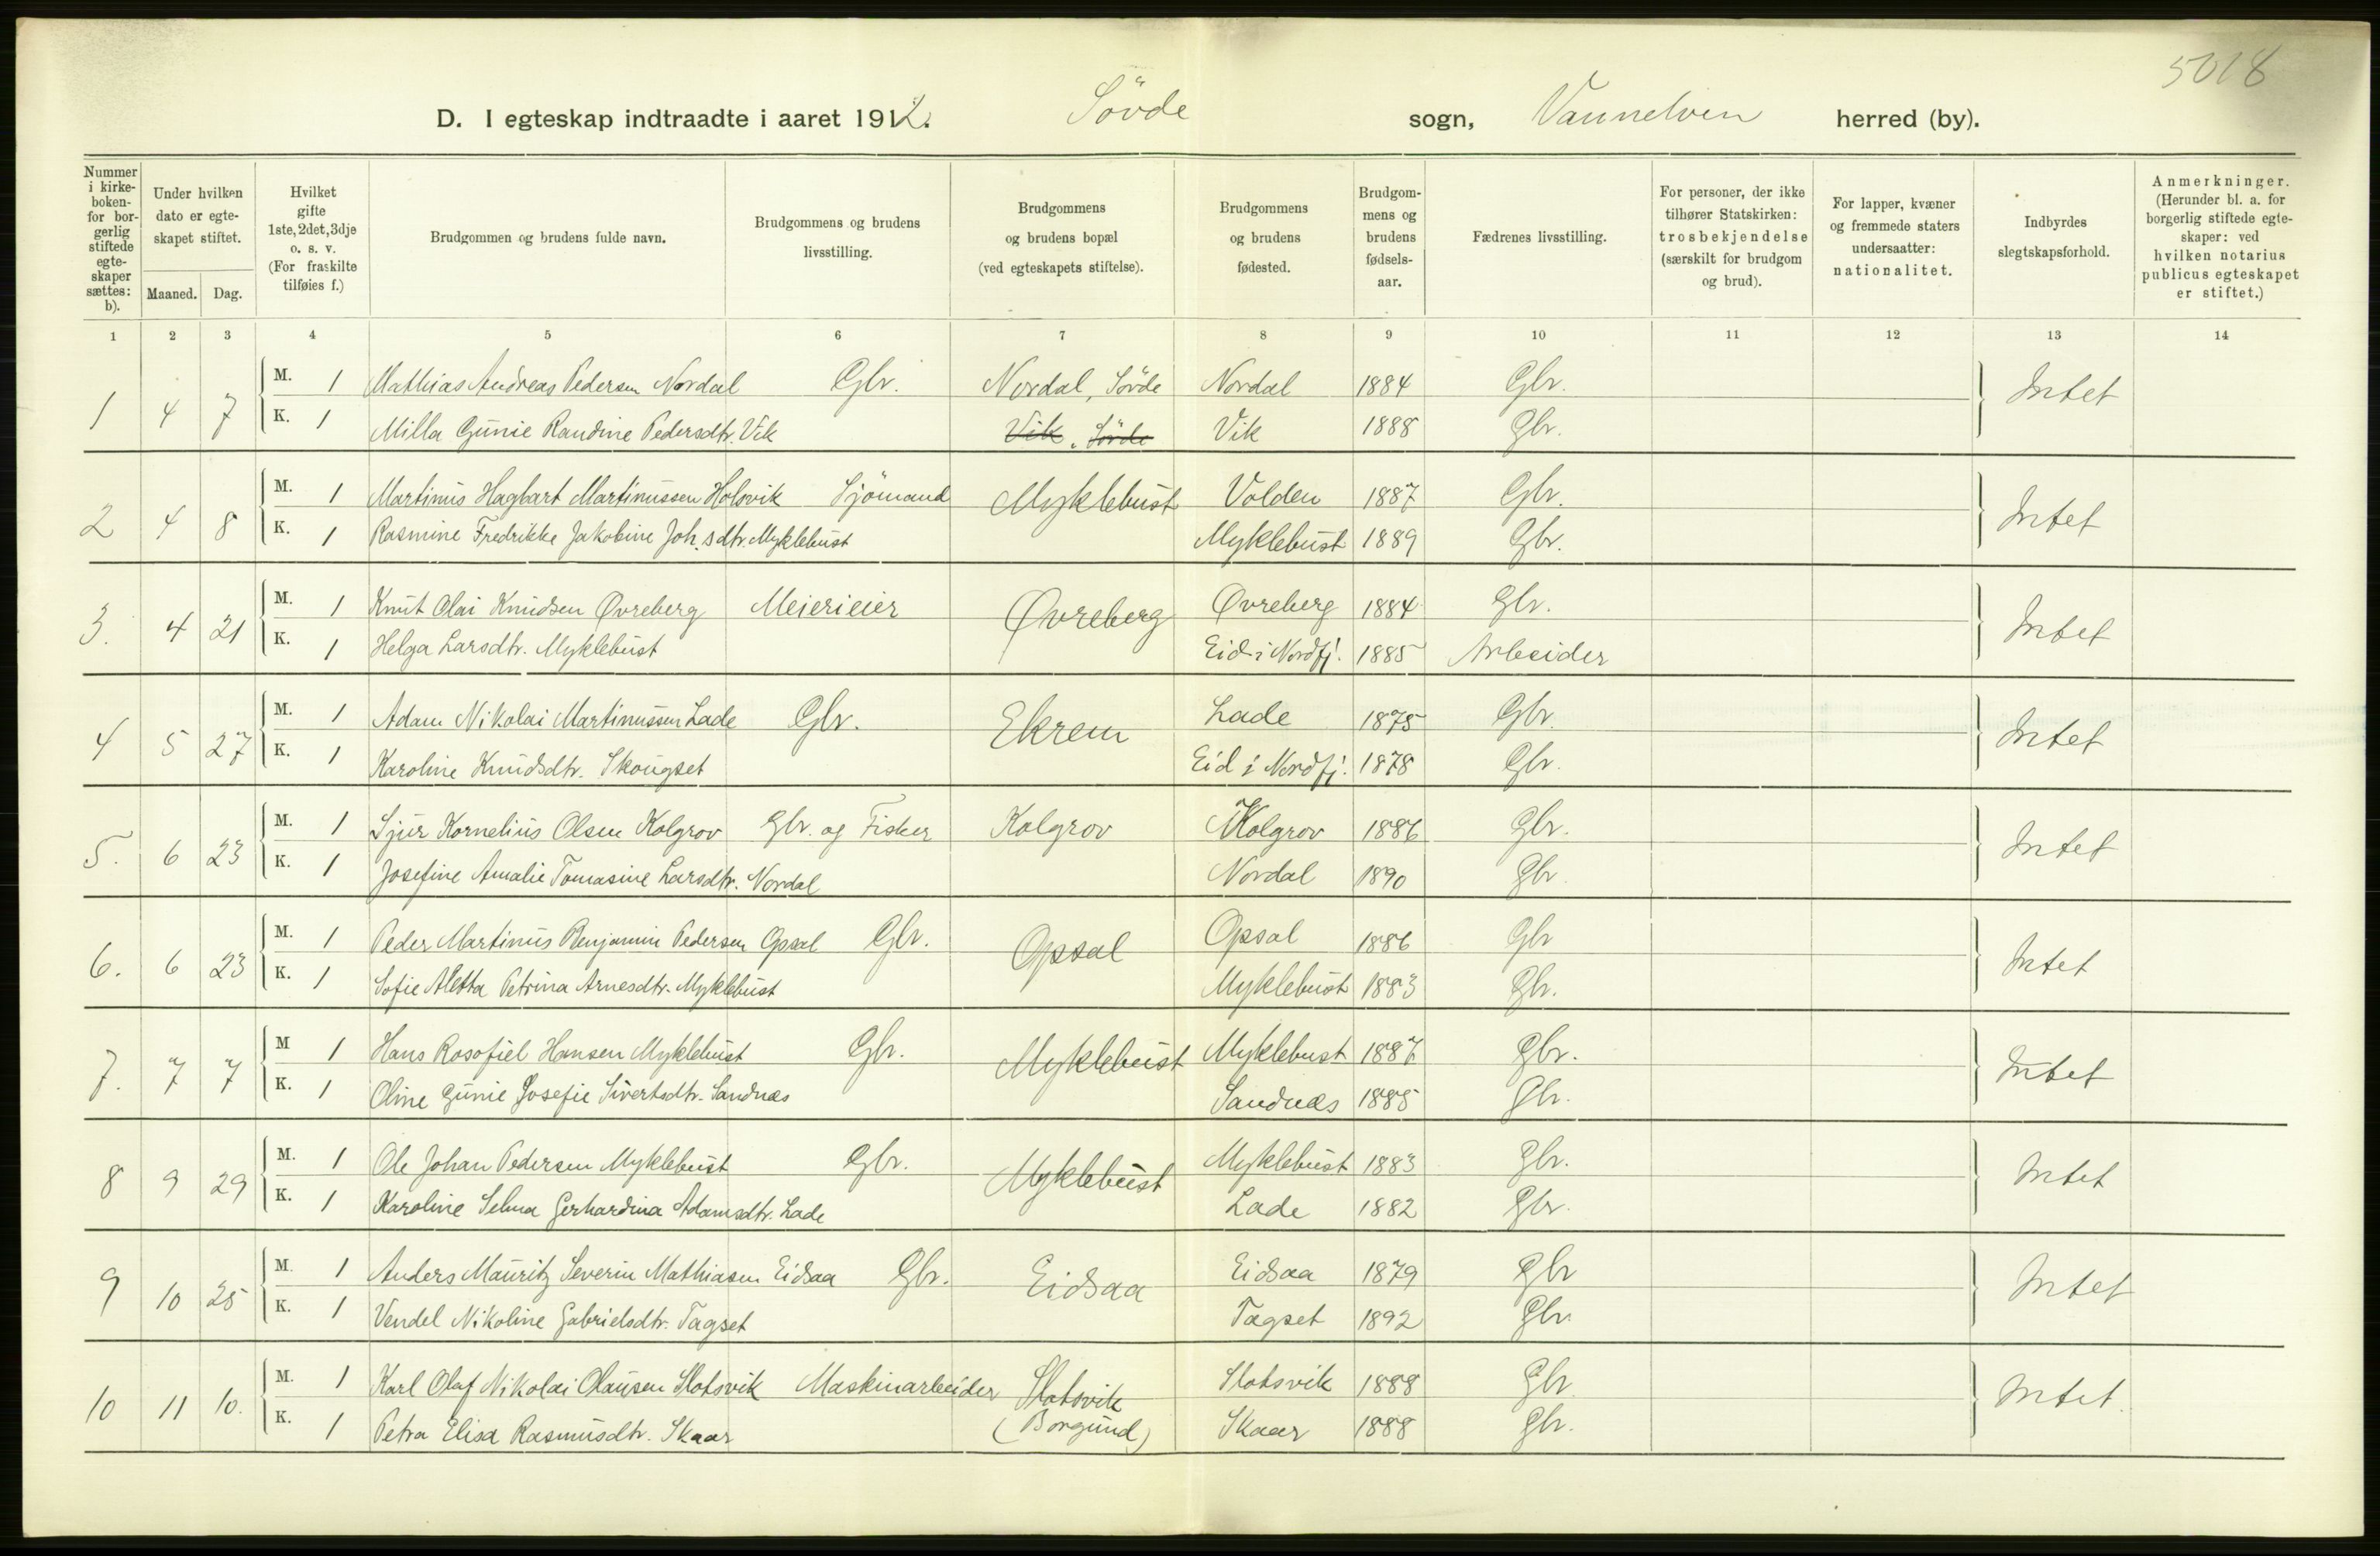 5018
D. I egteskap indtraadte i aaret 1912. Søvde sogn, Vannelven herred (by).
Nummer i kirkeboken- for borgerlig stiftede egteskaper sættes: b).
Under hvilken dato er egteskapet stiftet.
Maaned. Dag.
Hvilket gifte 1ste, 2det, 3dje o. s. v. (For fraskilte tilføies f.)
Brudgommen og brudens fulde navn.
Brudgommens og brudens livsstilling.
Brudgommens og brudens bopæl (ved egteskapets stiftelse).
Brudgommens og brudens fødested.
Brudgommens og brudens fødselsaar.
Fædrenes livsstilling.
For personer, der ikke tilhører Statskirken: trosbekjendelse (særskilt for brudgom og brud).
For lapper, kvæner og fremmede staters undersaatter: nationalitet.
Indbyrdes slegtskapsforhold.
Anmerkninger. (Herunder bl. a. for borgerlig stiftede egteskaper: ved hvilken notarius publicus egteskapet er stiftet.)
1 2 3 4 5 6 7 8 9 10 11 12 13 14
1 4 7 M. 1 Mathias Andreas Pedersen Nordal Gbr. Nordal, Sövde Nordal 1884 Gbr. Intet
K. 1 Milla Gunie Randine Pedersdtr. Vik Vik, Sövde Vik 1888 Gbr.
2 4 8 M. 1 Martinus Hagbart Martinussen Holsvik Sjömand Myklebust Volden 1887 Gbr. Intet
K. 1 Rasmine Fredrikke Jakobine Joh.sdtr. Myklebust Myklebust 1889 Gbr.
3. 4 21 M. 1 Knut Olai Knudsen Øvreberg Meierieier Øvreberg Øvreberg 1884 Gbr. Intet
K. 1 Helga Larsdtr. Myklebust Eid i Nordfj. 1885 Arbeider
4 5 27 M. 1 Adam Nikolai Martinussen Lade Gbr. Ekrem Lade 1875 Gbr. Intet
K. 1 Karoline Knudsdtr. Skougset Eid i Nordfj. 1878 Gbr.
5. 6 23 M. 1 Sjur Kornelius Olsen Kolgrov Gbr. og Fisker Kolgrov Kolgrov 1886 Gbr. Intet
K. 1 Josefine Amalie Tomasine Larsdtr. Nordal Nordal 1890 Gbr.
6. 6 23 M. 1 Peder Martinus Benjamin Pedersen Opsal Gbr. Opsal Opsal 1886 Gbr Intet
K. 1 Sofie Aletta Petrina Arnesdtr. Myklebust Myklebust 1883 Gbr.
7. 7 7 M 1 Hans Rosofiel Hansen Myklebust Gbr. Myklebust Myklebust Gbr. Intet
K. 1 Oline Gunie Josefie Sivertsdtr. Sandnæs Sandnæs 1885 Gbr.
8 9 29 M. 1 Ole Johan Pedersen Myklebust Gbr. Myklebust Myklebust 1883 Gbr. Intet
K. 1 Karoline Selma Gerhardina Adamsdtr. Lade Lade 1882 Gbr.
9 10 25 M. 1 Anders Mauritz Severin Mathiasen Eidsaa Gbr. Eidsaa Eidsaa 1879 Gbr Intet
K. 1 Vendel Nikoline Gabrielsdtr. Tagset Tagset 1892 Gbr.
10 11 10. M. 1 Karl Olaf Nikolai Olausen Slotsvik Maskinarbeider Slotsvik Slotsvik 1888 Gbr. Intet.
K. 1 Petra Elisa Rasmusdtr. Skaar (Borgund) Skaar 1888 Gbr.